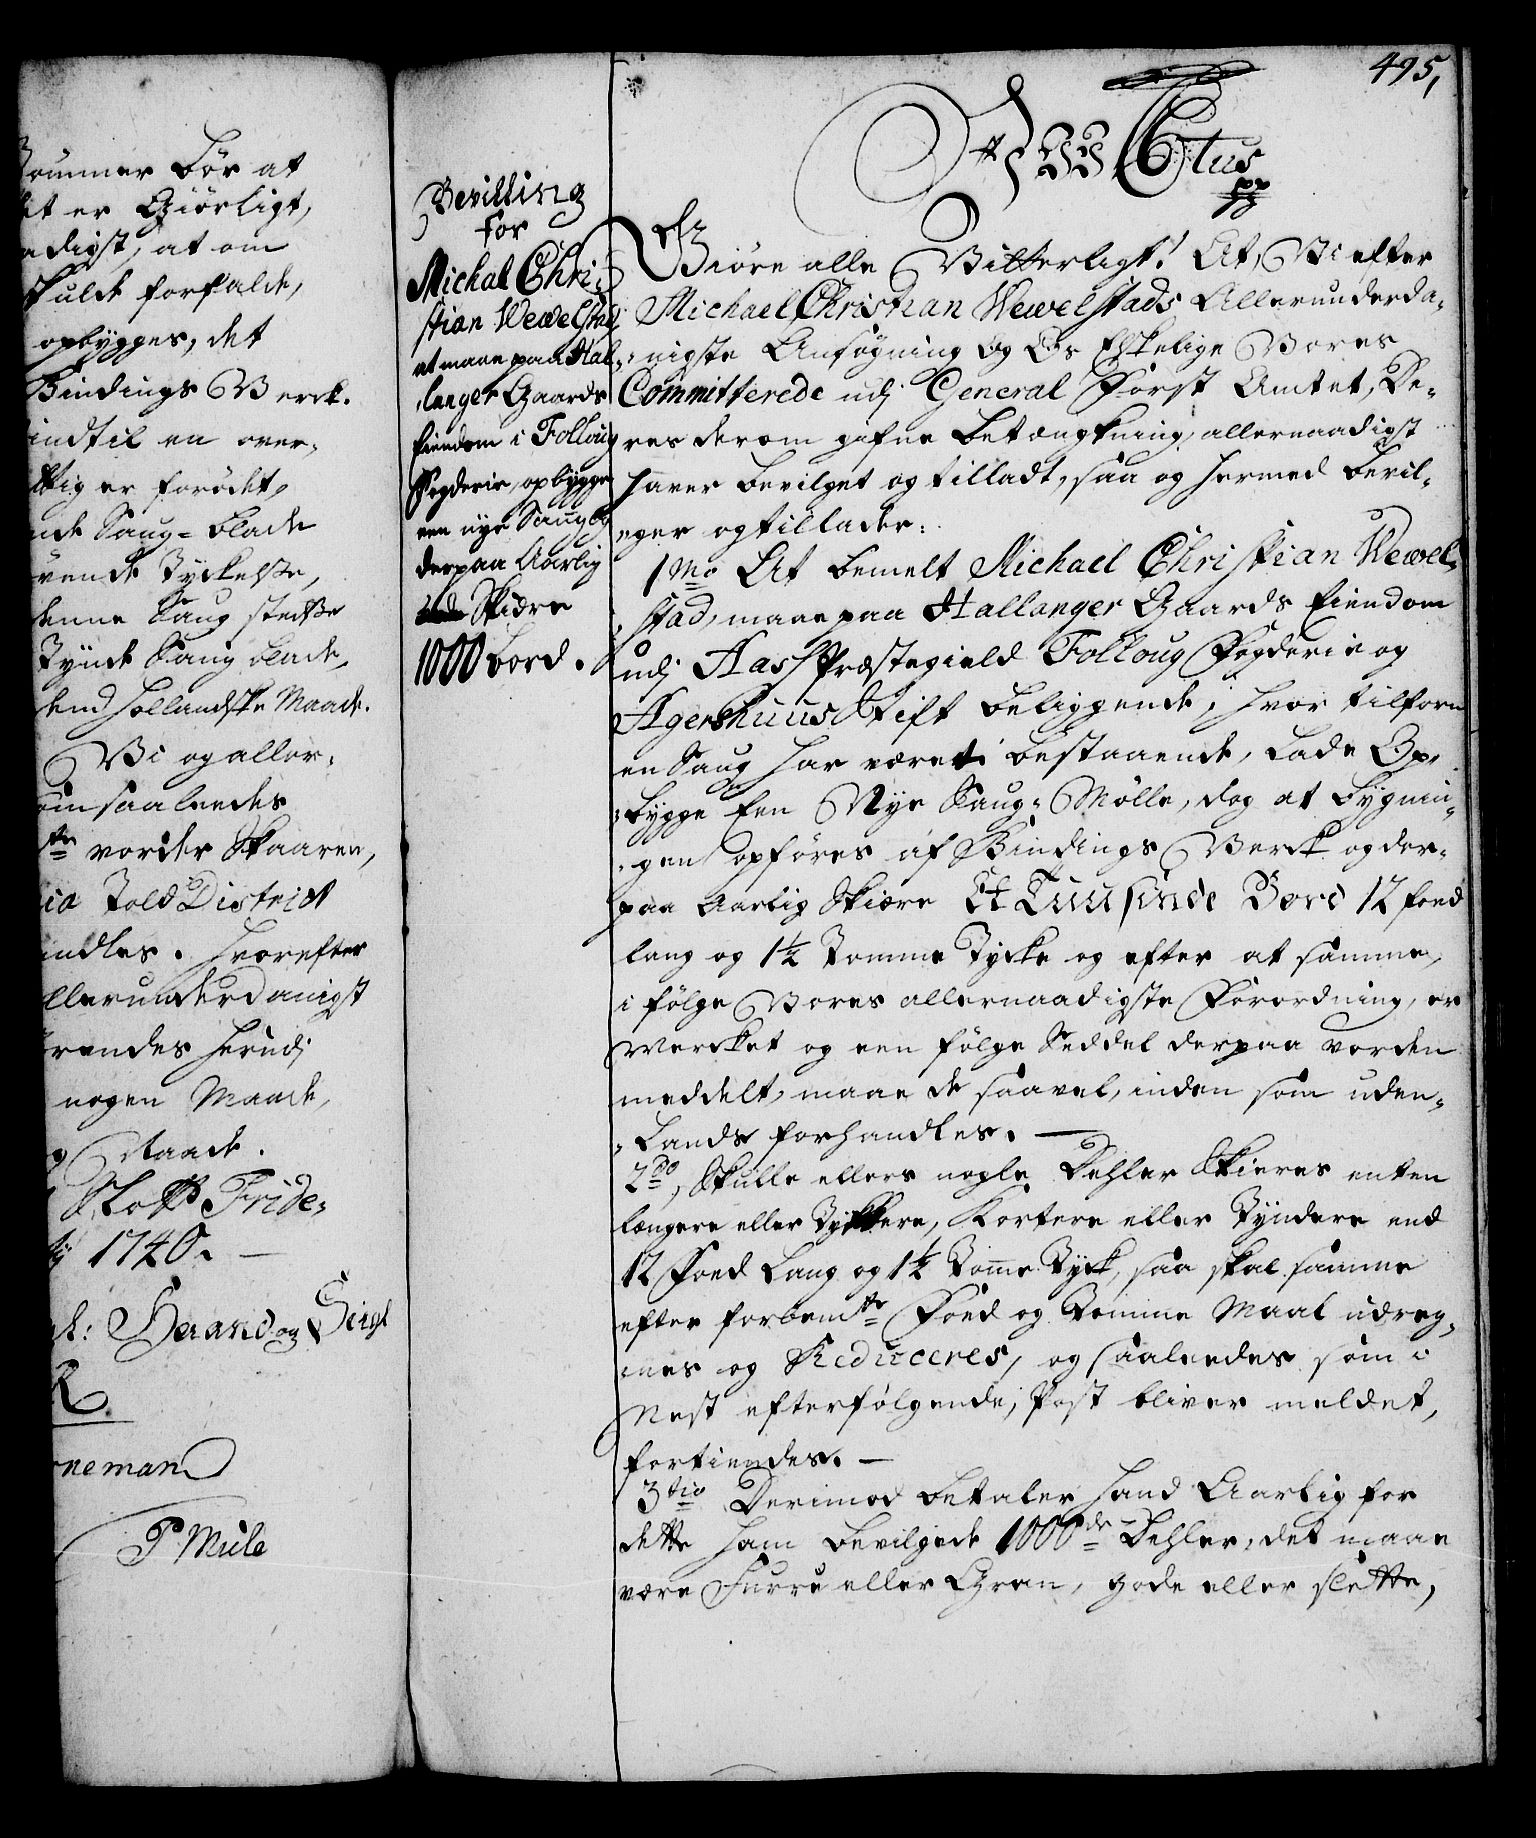 ommer bør at
et er Giørligt,
adigst, at om
skulde forfalde,
opbygges, det
Bindings Verck.
indtil en over,
tig er forødet,
nde Saug-blade
vende Tyckelse,
denne Saug stette
Tynde Saug blade,
end Hollandske Maade.
Vi og aller,
om saaleedes
te vorder Skaaren,
ia Told District
andles. Hvorefter
llerunderdanigst
rendes herudj
nogen Maade,
Naade.
Slott Fride,
1740.
Haand og Seigl
R.
rneman
P Mule
Bevilling
for
Michal Chri,
stian Wewelstad
at maae paa Hal,
langer Gaards
Eiendom i Follong
Fogderie, opbygge
een nye Saug og
derpaa Aarlig
Skiære
1000 bord.
495,
Wii C6tus
pp
Giøre alle Vitterligt! At, Vi efter
Michael Christian Wewelstads Allerunderda,
nigste Ansøgning og Os Elskelige Vores
Committerede udj General Forst Amtet, De,
res derom gifne Betængkning, allernaadigst
haver bevilget og tilladt, saa og hermed bevil,
eger og tillader:
1mo At bemelt Michael Christian Wewel,
stad, maae paa Hallanger Gaards Eiendom
udj Aass Præstegield Follong Fogderie og
Agershuus Stift beliggende, hvor tilforn
en Saug har været bestaaende, lade Op,
bygge Een Nye Saug, Mølle, dog at bygnin,
gen opføres af Bindings Verck og der,
paa Aarlig Skiære Et Tuusinde Bord 12 foed
lang og 1½ Tomme Tycke og efter at samme,
i følge Vores allernaadigste Forordning, er
Mercket og een følge Seddel derpaa vorden
meddelt, maae de saavel, inden som uden,
Lands forhandles. —
2do, Skulle ellers nogle Dehler Skieres enten
længere eller Tykkere, Kortere eller Tyndere end
12 Foed Lang og 1½ Tome Tyck, saa skal samme
efter forbemte Foed og Tomme Maal udreg,
nes og Reduceres, og saaleedes som i
Nest efterfølgende, Post bliver meldet,
fortiendes. —
3tio Derimod betaler hand Aarlig for
dette ham bevilgede 1000de Dehler, det maae
være Furru eller Gran, gode eller slette,